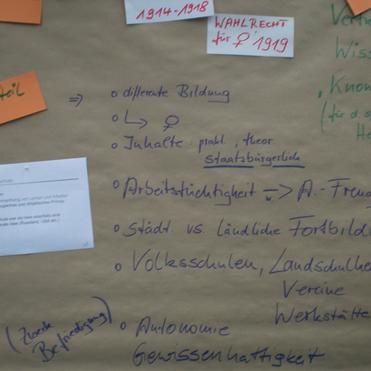 1914-1918
WAHLRECHT
für ♀ 1919
⇒ o differente Bildung
o ↳ ♀
o Inhalte: prakt., theor.
staatsbürgerlich
o Arbeitstüchtigkeit <-> A.-Freud
o städt vs. ländliche Fortbild
o Volksschulen, Landschulhe
Vereine
Werkstätte
o Autonomie
Gewissenhaftigkeit
Befriedigung)
teil
Wiss
Know
(für d.